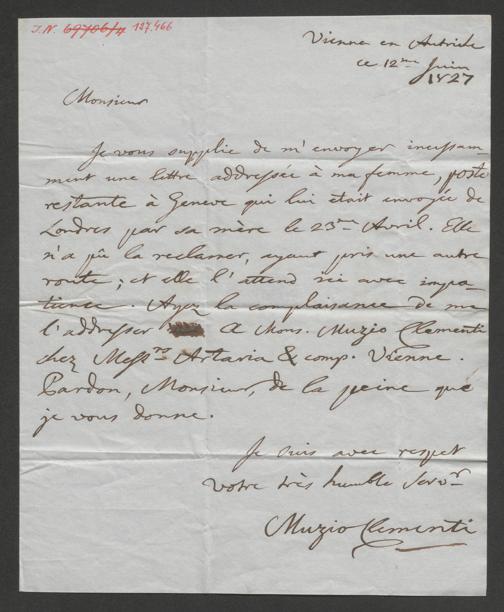 I.N. 69706/4 127.466
Vienne en Autriche
ce 12me Juin
1827
Monsieur
Je vous supplie de m'envoyer incessam
ment une lettre addressée à ma femme, poste
restante à Geneve qui lui était envoyée de
Londres par sa mère le 23me Avril. Elle
n'a pû la reclamer, ayant pris une autre
route; et elle l'attend ici avec impa
tience. Ayez la complaisance de me
l'addresser A Mons. Muzio Clementi
chez Messrs Artaria & comp. Vienne.
Pardon, Monsieur, de la peine que
je vous donne.
Je suis avec respect
votre très humble Servr
Muzio Clementi